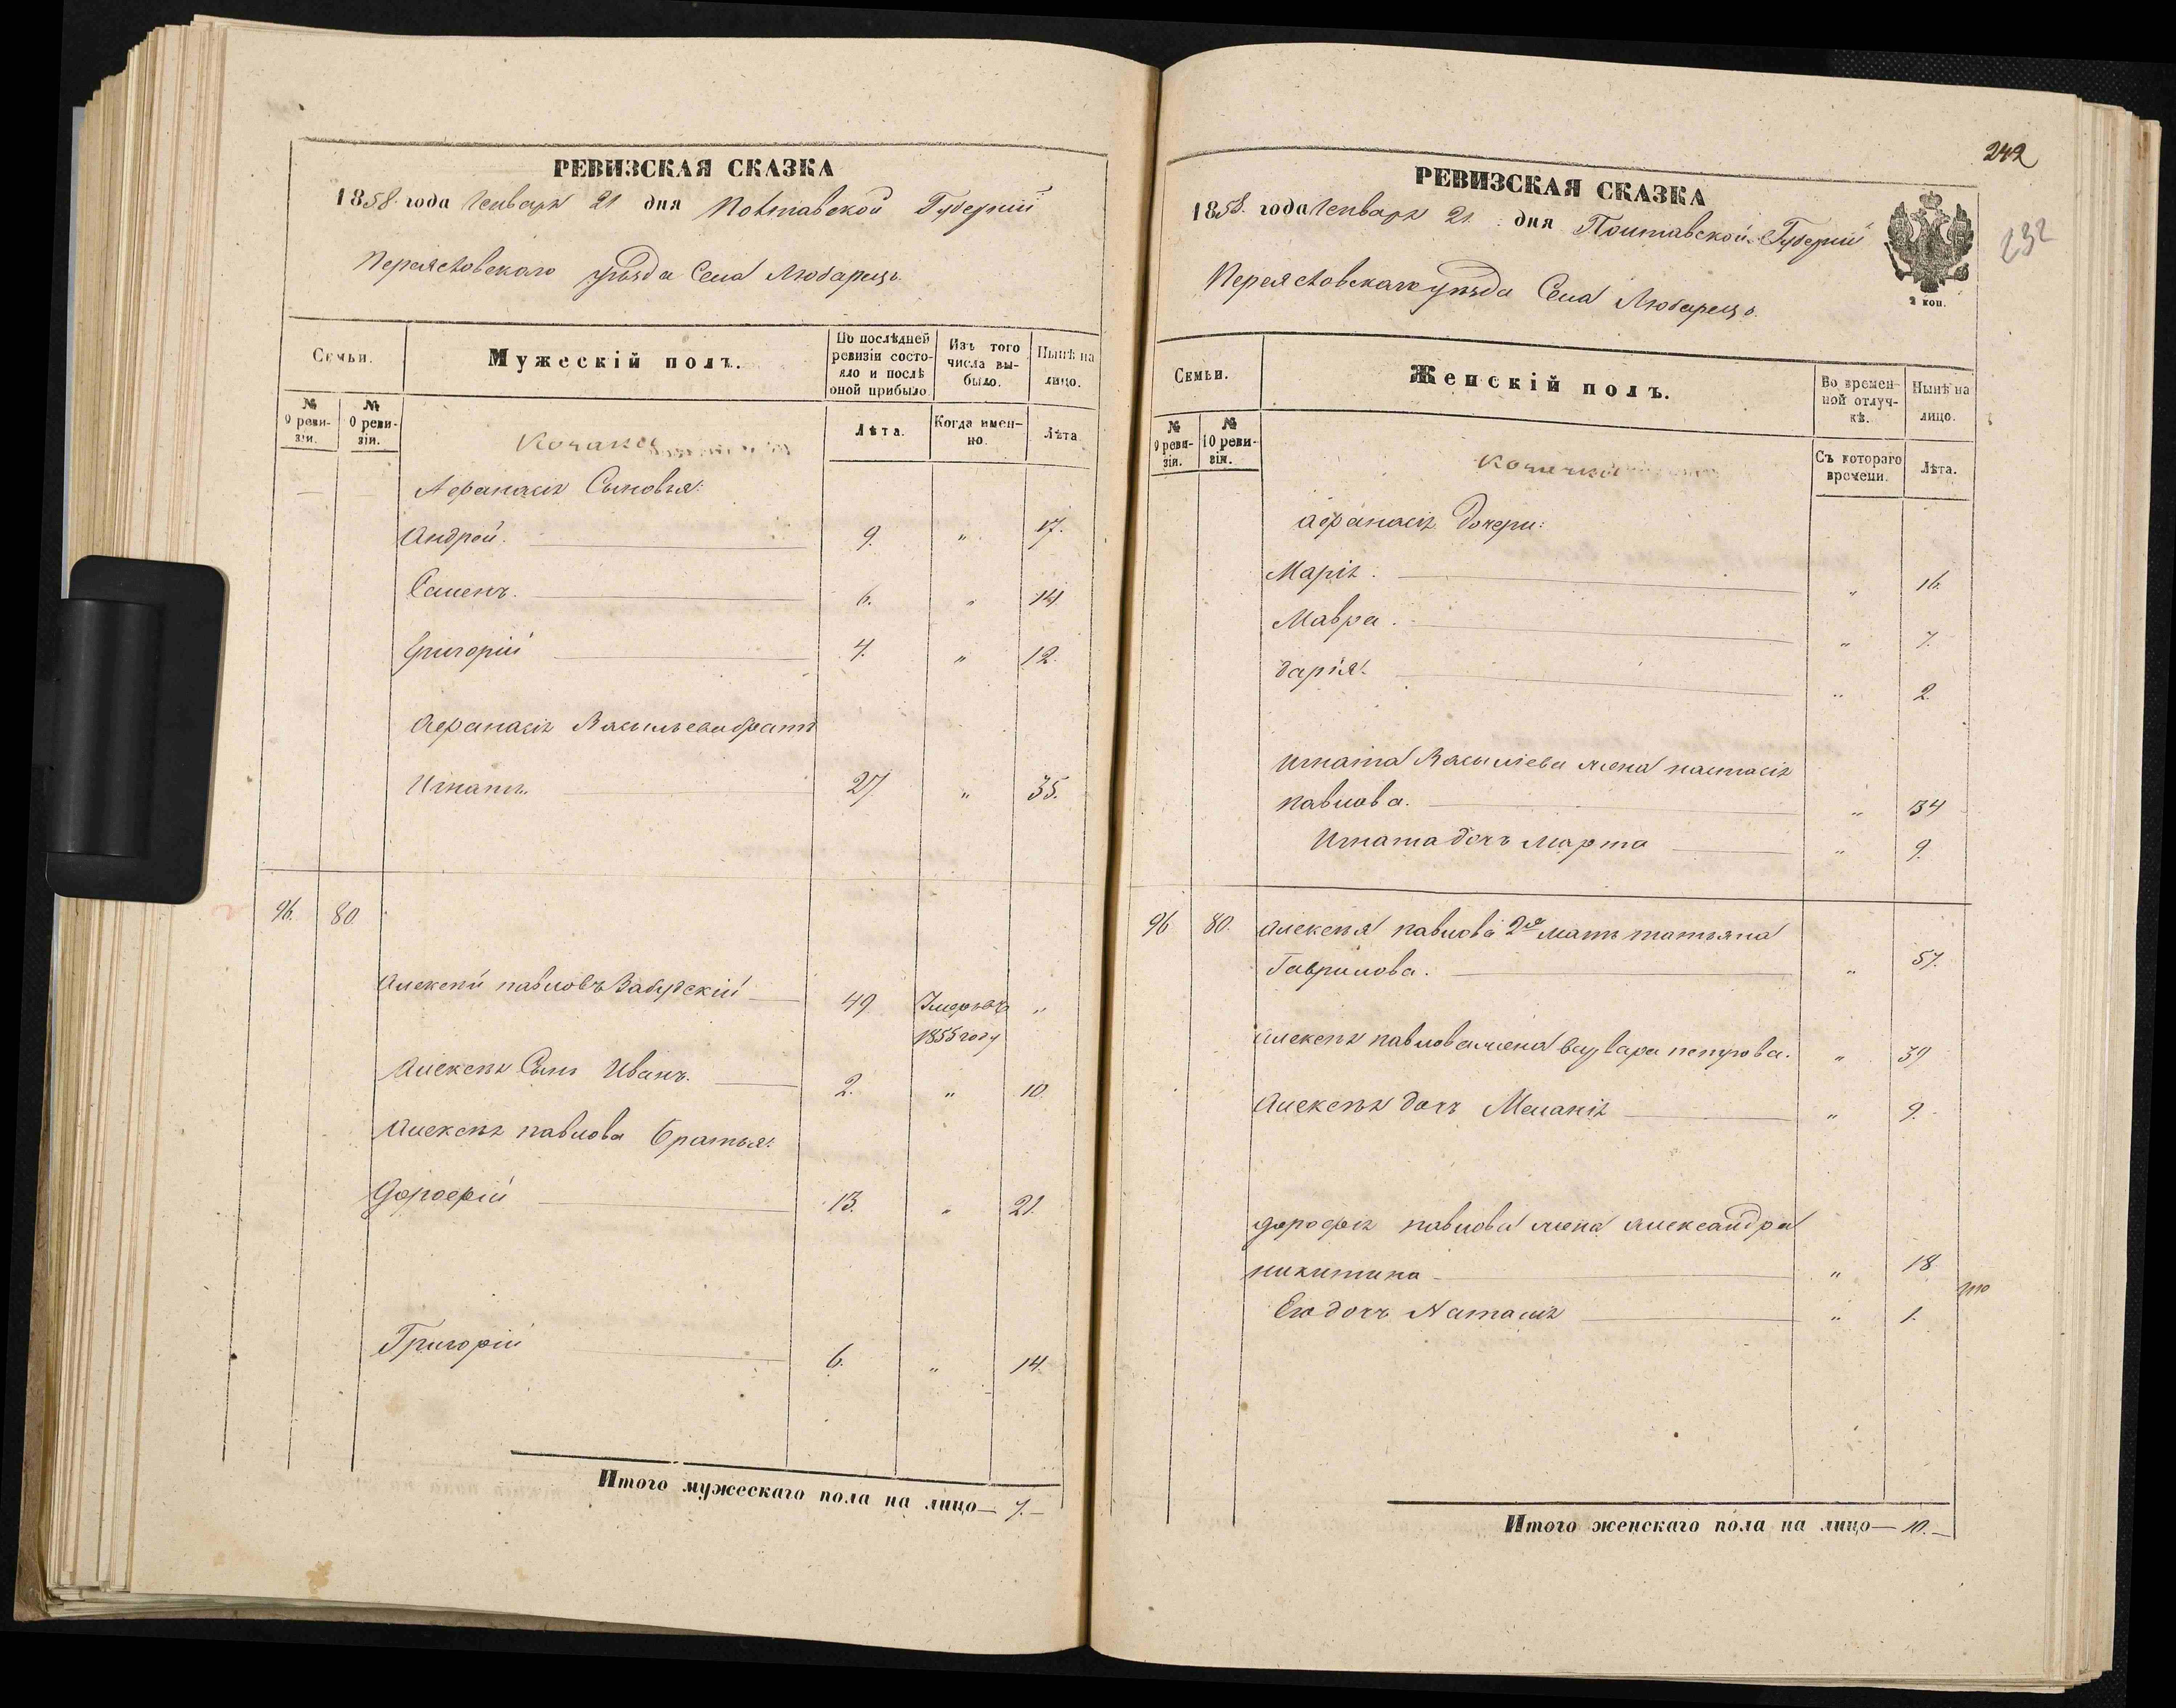 РЕВИЗСКАЯ СКАЗКА
1858. года Генваря 21 дня Полтавской Губерніи
Переясловскаго уѣзда Села Любарецъ.
Семьи.
Мужескій полъ.
По послѣдней ревизіи состояло и послѣ оной прибыло
Изъ того числа выбыло.
Нынѣ на лицо.
№ 9 ревизіи.
№ 10 ревизіи.
Лѣта.
Когда именно.
Лѣта
Афанасія Сыновья:
Андрей. 9. " 17.
Семенъ. 6. " 14
Григорій 4. " 12.
Афанасія Васильева братъ
Игнатъ. 27. " 35.
96. 80.
Алексѣй павловъ Забудскій 49 Умеръ въ "
1855 году
Алексѣя Сынъ Иванъ. 2. " 10
Алексѣя павлова братья:
Дорофѣй 13. " 21.
Григорій 6. " 14.
Итого мужескаго пола на лицо— 7.—
242
232
РЕВИЗСКАЯ СКАЗКА
1858. года Генваря 21 дня Полтавской Губерніи
Переясловскаго уѣзда Села Любарецъ.
2 коп.
Семьи.
Женскій полъ.
Во временной отлучкѣ.
Нынѣ на лицо.
№ 9 ревизіи.
№ 10 ревизіи.
Съ котораго времени.
Лѣта.
афанасія дочери:
Марія. " 16.
Мавра. " 7.
дарія. " 2.
Игната Васильева жена настасія
павлова. " 34
Игната дочь марта " 9.
96 80. Алексѣя павлова 2я мать татьяна
Гаврилова. " 57.
Алексѣя павлова жена варвара петрова. " 39
Алексѣя дочь Меланія " 9.
дорофѣя павлова жена александра
никитина " 18
Его дочь Наталія " 1.
Итого женскаго пола на лицо— 10.—